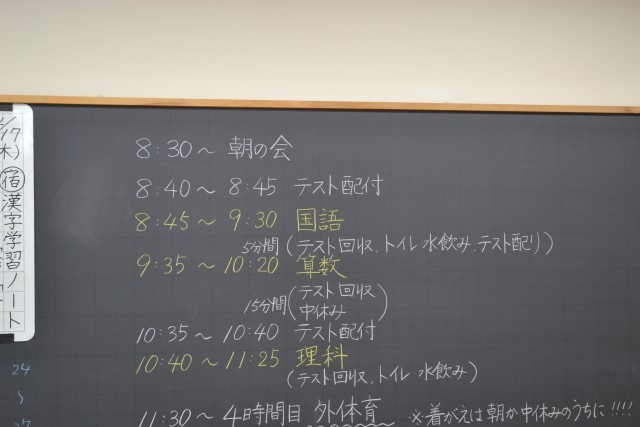 8:30～ 朝の会
8:40～8:45 テスト配付
8:45～9:30 国語
5分間(テスト回収、トイレ 水飲み、テスト配り)
9:35～10:20 算数
15分間(テスト回収
中休み)
10:35～10:40 テスト配付
10:40～11:25 理科
(テスト回収、トイレ 水飲み)
11:30～ 4時間目 外体育 ※着がえは朝か中休みのうちに!!!!
/17(木)
宿 漢字学習ノート
24
～
27